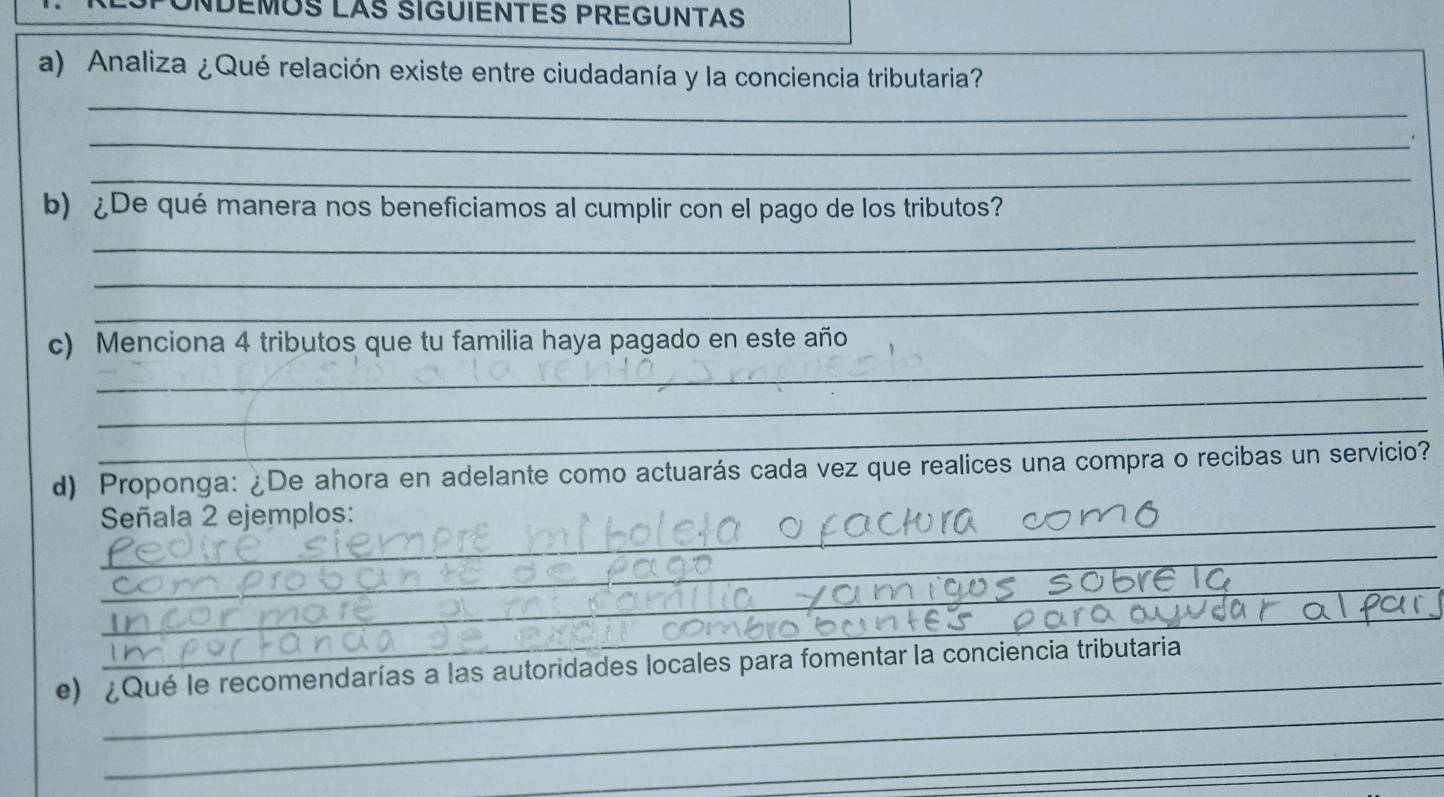 LAS SIGUIENTES PREGUNTAS
a) Analiza ¿Qué relación existe entre ciudadanía y la conciencia tributaria?
b) ¿De qué manera nos beneficiamos al cumplir con el pago de los tributos?
c) Menciona 4 tributos que tu familia haya pagado en este año
a la renta,
d) Proponga: ¿De ahora en adelante como actuarás cada vez que realices una compra o recibas un servicio?
Señala 2 ejemplos:
Pediré siempre mi boleta o factura como
comprobante de pago
informaré a mi familia y amigos sobre la
importancia de exigir combrobantes para ayudar al pais
e) ¿Qué le recomendarías a las autoridades locales para fomentar la conciencia tributaria